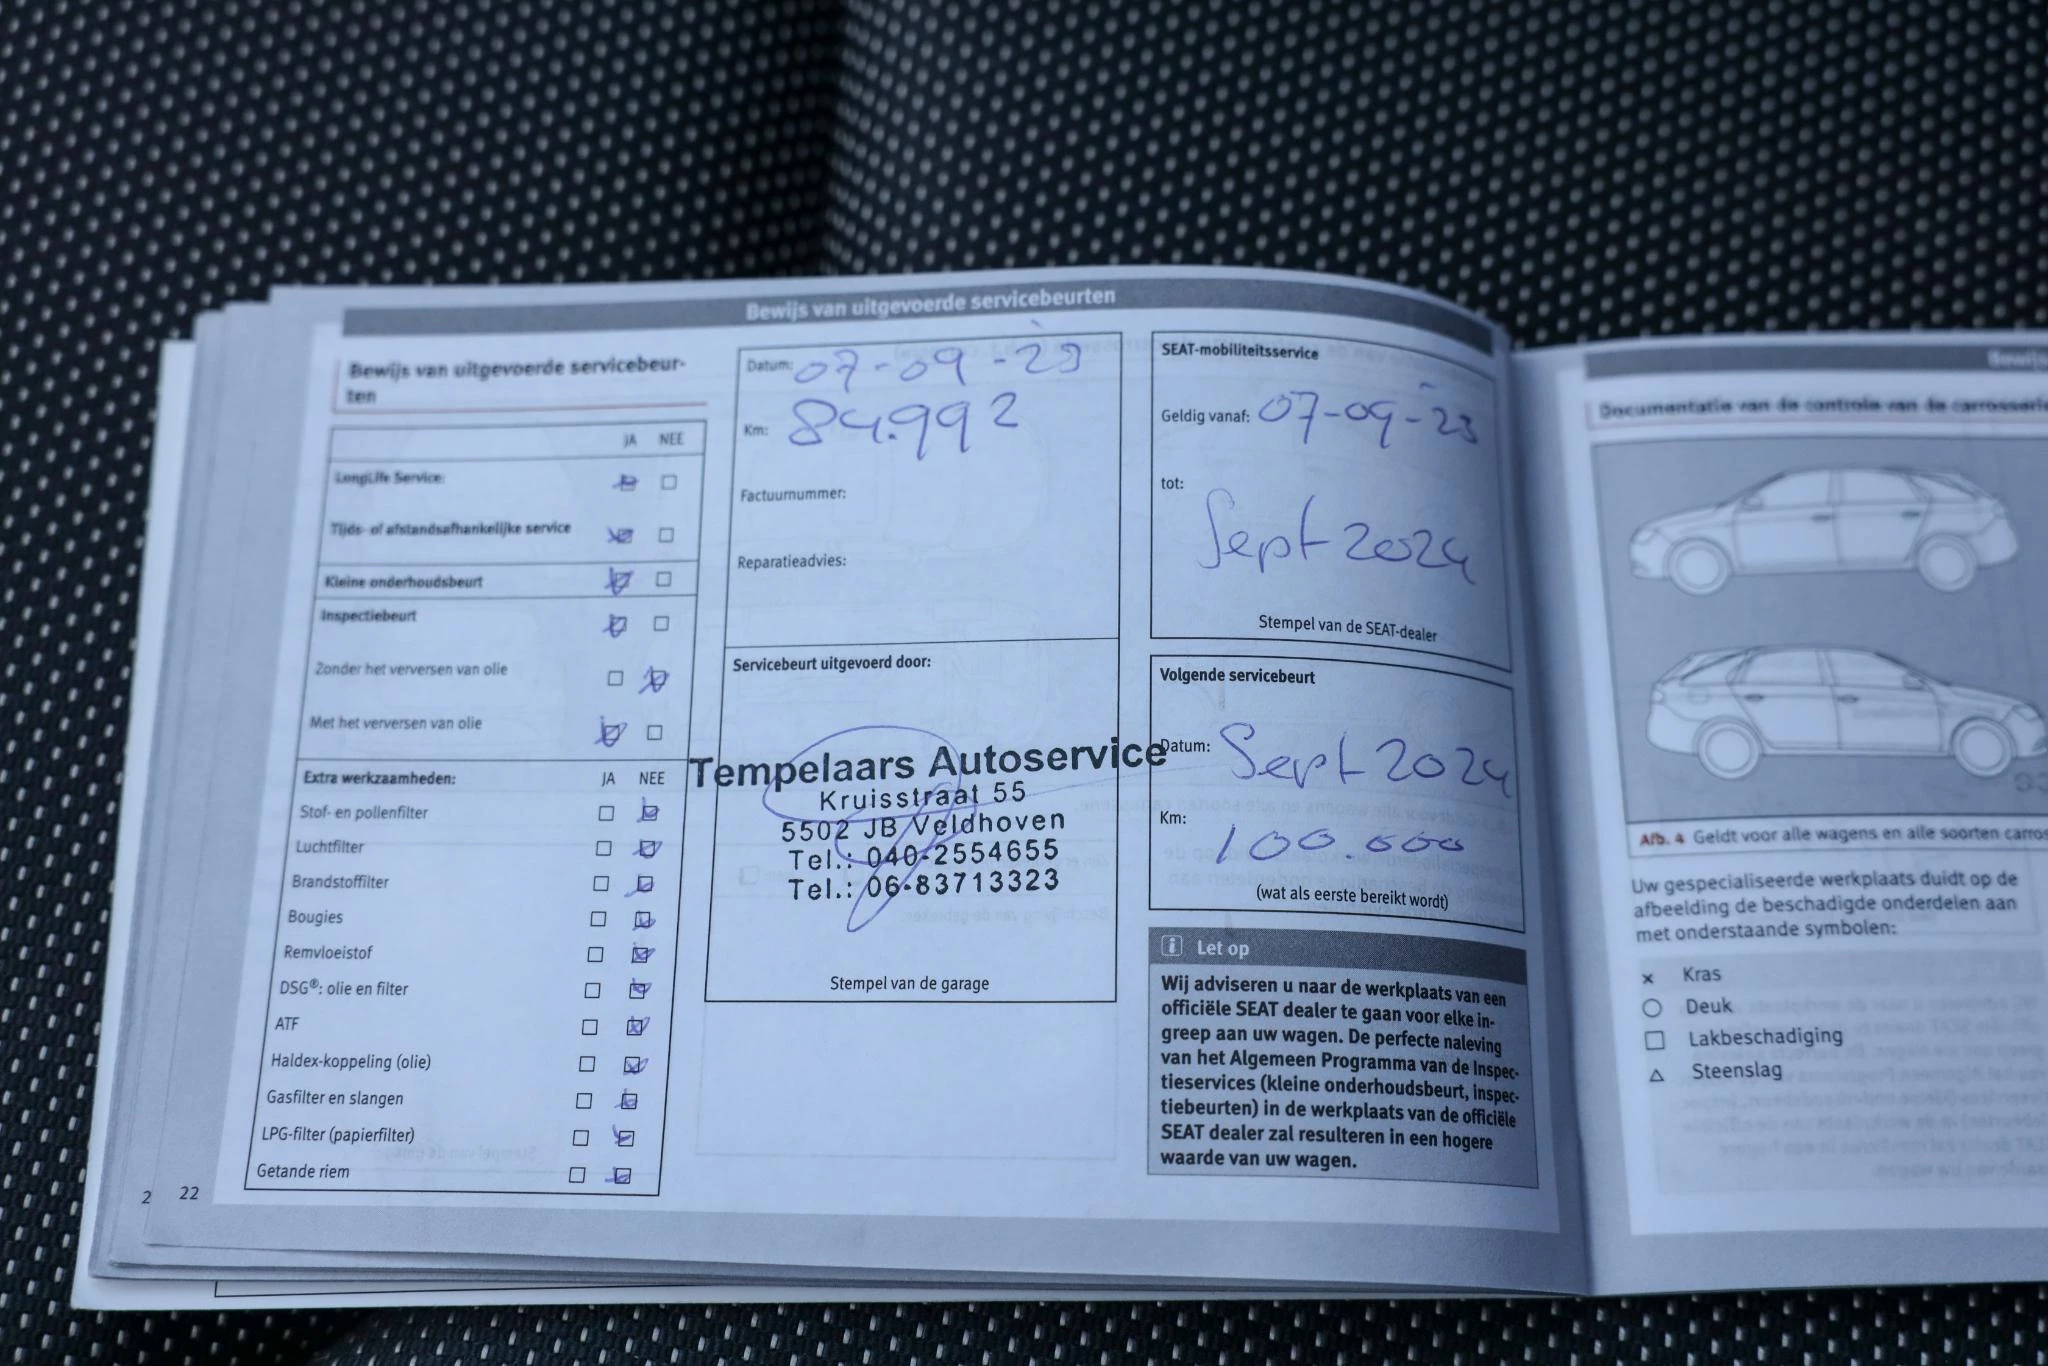 Bewijs van uitgevoerde servicebeurten
Bewijs van uitgevoerde servicebeur-
ten
JA NEE
LongLife Service:
Tijds- of afstandsafhankelijke service
Kleine onderhoudsbeurt
Inspectiebeurt
Zonder het verversen van olie
Met het verversen van olie
Extra werkzaamheden: JA NEE
Stof- en pollenfilter
Luchtfilter
Brandstoffilter
Bougies
Remvloeistof
DSG®: olie en filter
ATF
Haldex-koppeling (olie)
Gasfilter en slangen
LPG-filter (papierfilter)
Getande riem
2 22
Datum: 07-09-'23
Km: 84.992
Factuurnummer:
Reparatieadvies:
Servicebeurt uitgevoerd door:
Tempelaars Autoservice
Kruisstraat 55
5502 JB Veldhoven
Tel.: 040-2554655
Tel.: 06-83713323
Stempel van de garage
SEAT-mobiliteitsservice
Geldig vanaf: 07-09-'23
tot:
Sept 2024
Stempel van de SEAT-dealer
Volgende servicebeurt
Datum: Sept 2024
Km: 100.000
(wat als eerste bereikt wordt)
i Let op
Wij adviseren u naar de werkplaats van een
officiële SEAT dealer te gaan voor elke in-
greep aan uw wagen. De perfecte naleving
van het Algemeen Programma van de Inspec-
tieservices (kleine onderhoudsbeurt, inspec-
tiebeurten) in de werkplaats van de officiële
SEAT dealer zal resulteren in een hogere
waarde van uw wagen.
Documentatie van de controle van de carrosserie
Afb. 4 Geldt voor alle wagens en alle soorten carros
Uw gespecialiseerde werkplaats duidt op de
afbeelding de beschadigde onderdelen aan
met onderstaande symbolen:
Kras
Deuk
Lakbeschadiging
Steenslag